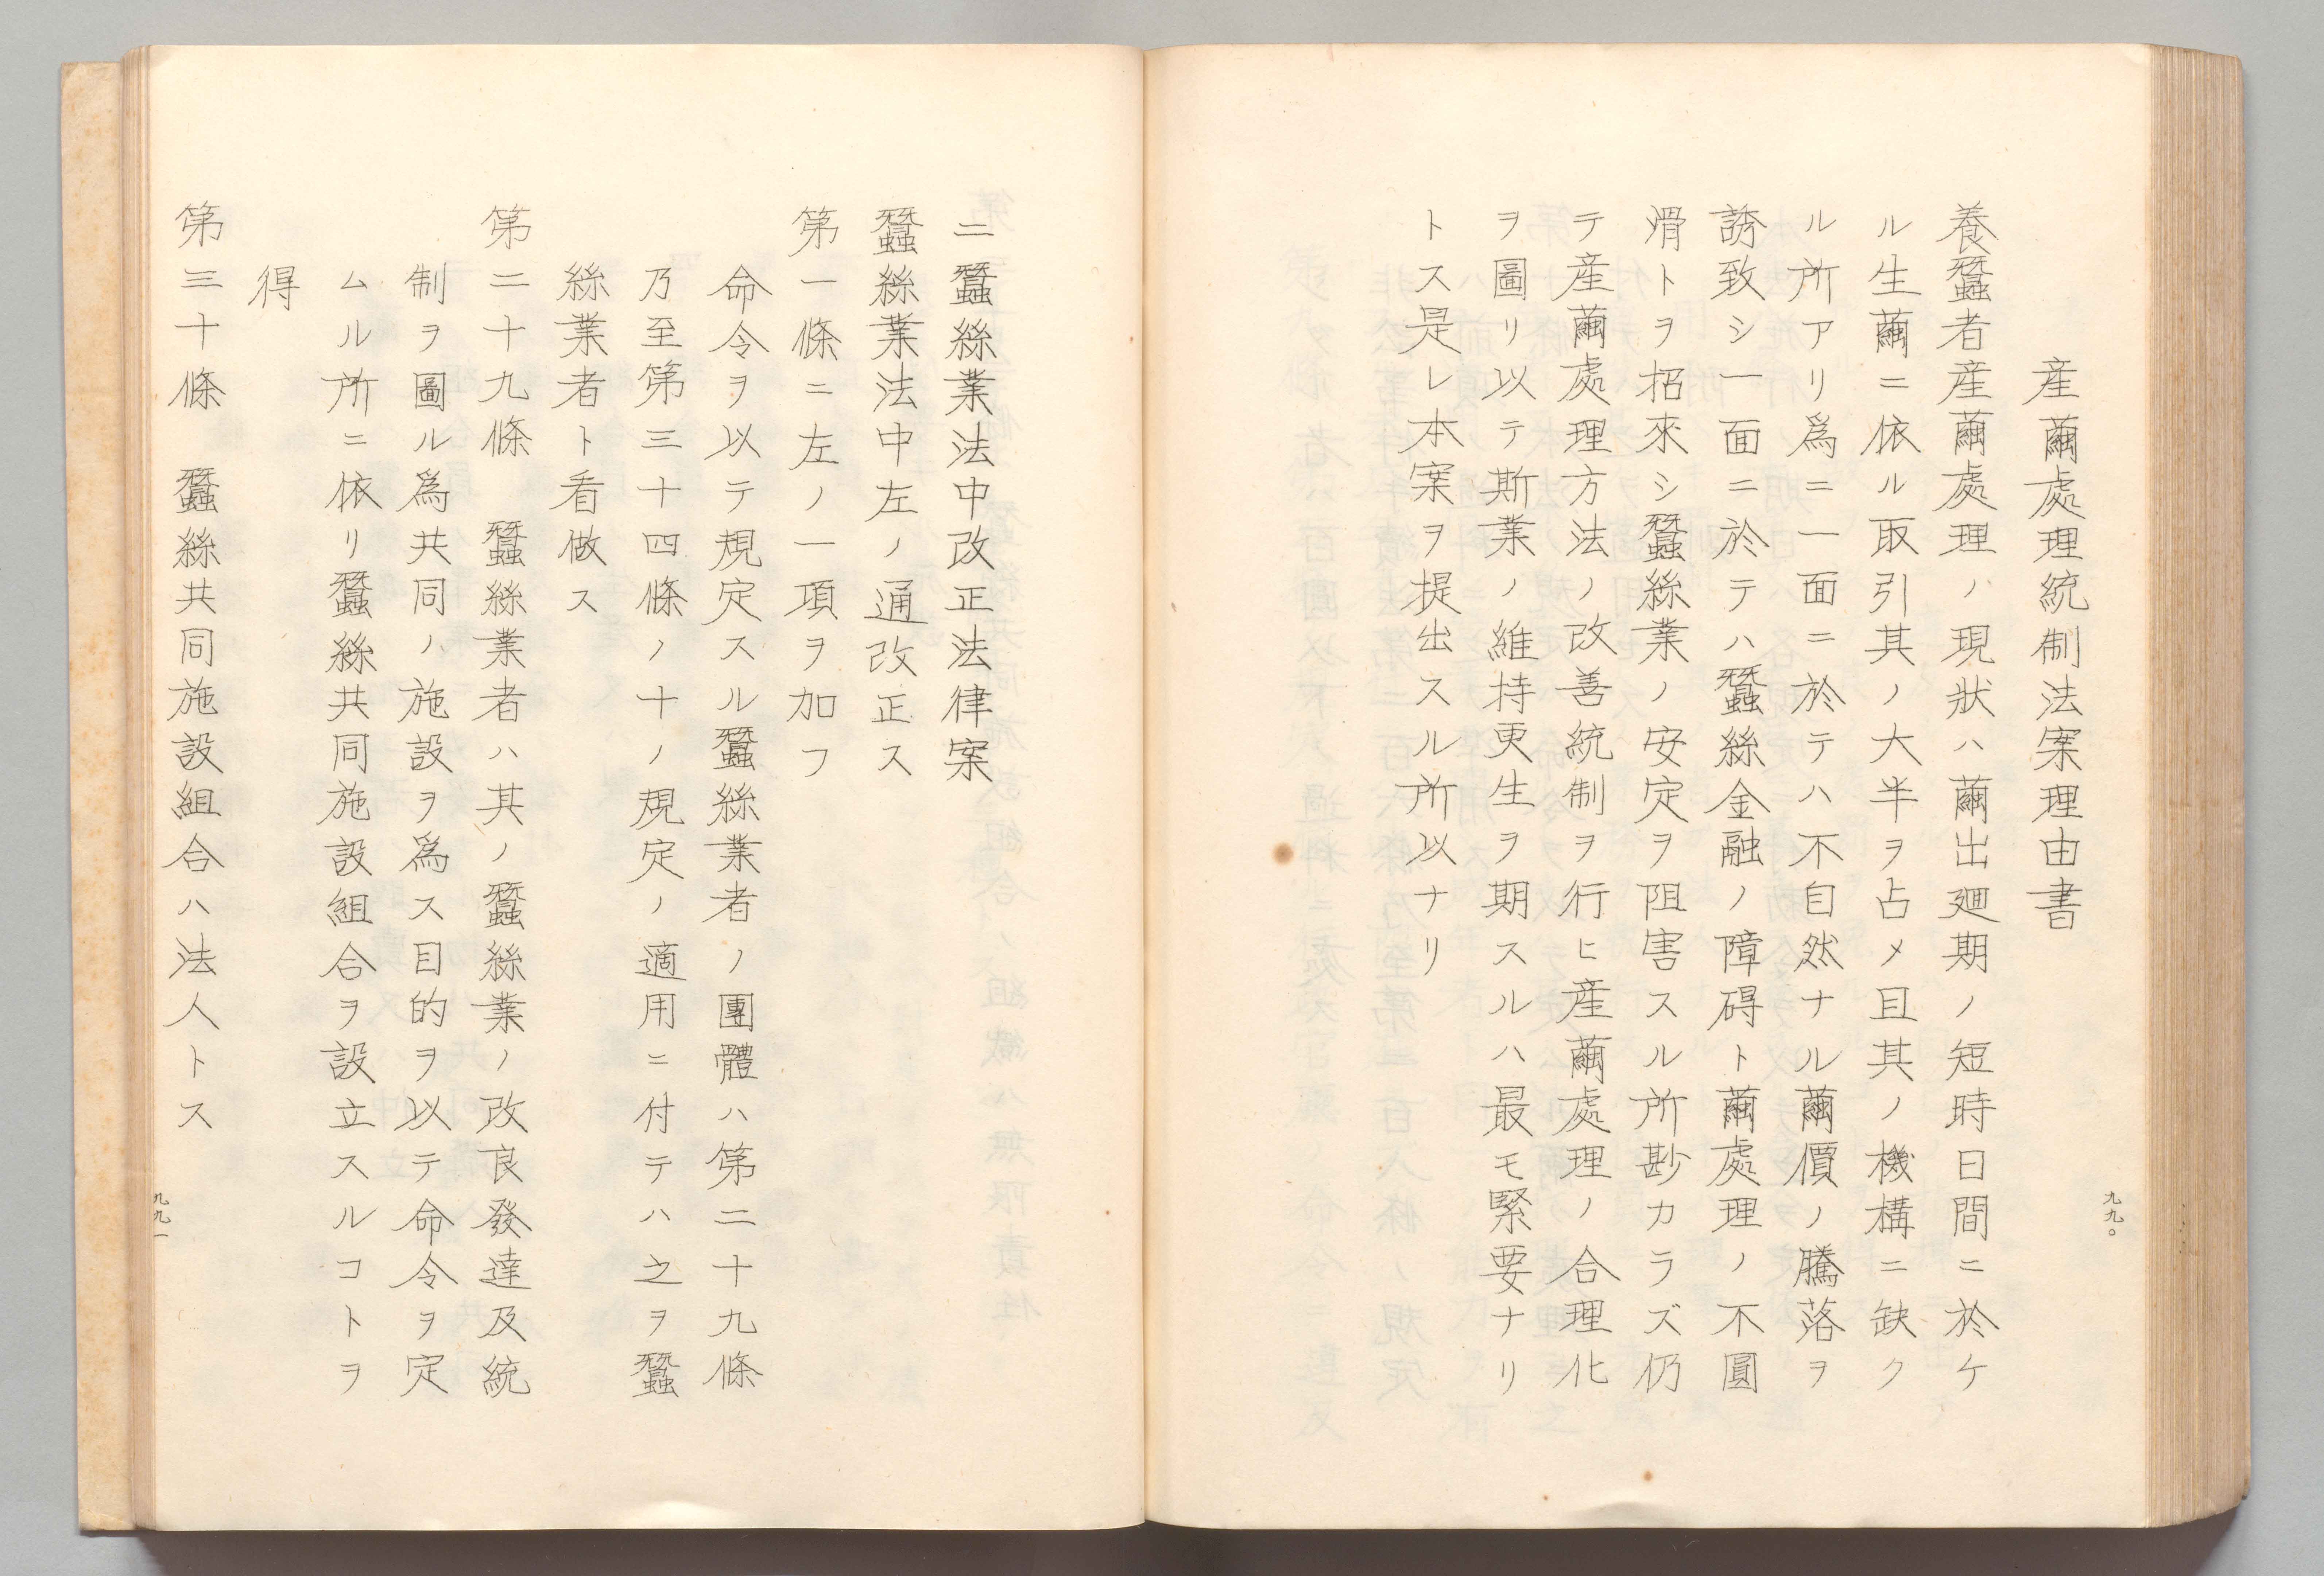 産繭處理統制法案理由書
養蠶者産繭處理ノ現狀ハ繭出廻期ノ短時日間ニ於ケ
ル生繭ニ依ル取引其ノ大半ヲ占メ且其ノ機構ニ缺ク
ル所アリ爲ニ一面ニ於テハ不自然ナル繭價ノ騰落ヲ
誘致シ一面ニ於テハ蠶絲金融ノ障碍ト繭處理ノ不圓
滑トヲ招來シ蠶絲業ノ安定ヲ阻害スル所尠カラズ仍
テ産繭處理方法ノ改善統制ヲ行ヒ産繭處理ノ合理化
ヲ圖リ以テ斯業ノ維持更生ヲ期スルハ最モ緊要ナリ
トス是レ本案ヲ提出スル所以ナリ
九九〇
二蠶絲業法中改正法律案
蠶絲業法中左ノ通改正ス
第一條ニ左ノ一項ヲ加フ
命令ヲ以テ規定スル蠶絲業者ノ團體ハ第二十九條
乃至第三十四條ノ十ノ規定ノ適用ニ付テハ之ヲ蠶
絲業者ト看做ス
第二十九條 蠶絲業者ハ其ノ蠶絲業ノ改良發達及統
制ヲ圖ル爲共同ノ施設ヲ爲ス目的ヲ以テ命令ヲ定
ムル所ニ依リ蠶絲共同施設組合ヲ設立スルコトヲ
得
第三十條 蠶絲共同施設組合ハ法人トス
九九一